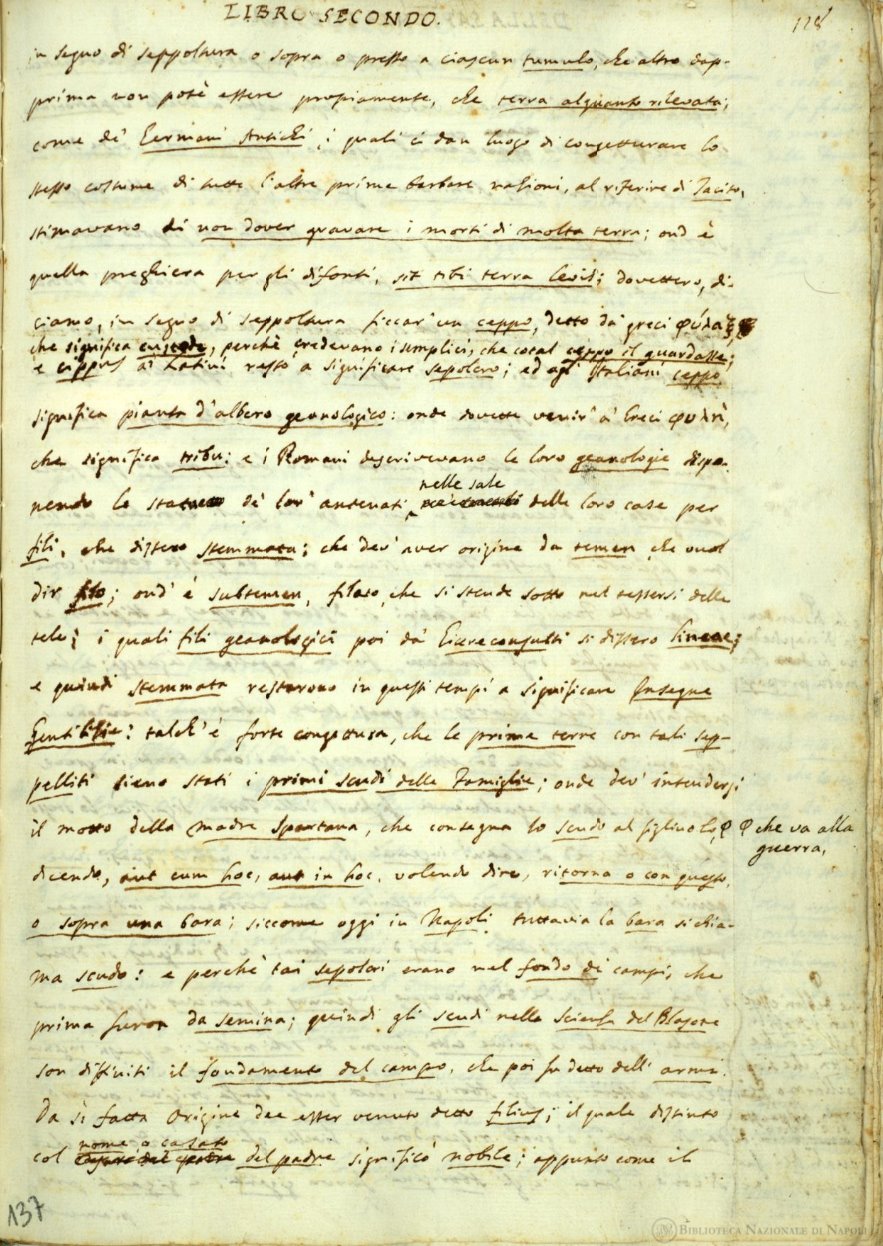 LIBRO SECONDO.
128
in segno di seppoltura o sopra o presso a ciascun tumulo, che altro dap-
prima non potè essere propiamente, che terra alquanto rilevata;
come de' Germani Antichi, i quali ci dan luogo di congetturare lo
stesso costume di tutte l'altre prime barbare nazioni, al riferire di Tacito,
stimavano di non dover gravare i morti di molta terra; ond' è
quella preghiera per gli difonti, sit tibi terra levis; dovettero, di-
ciamo, in segno di seppoltura ficcar' un ceppo, detto da' greci φύλαξ,
che significa custode, perchè credevano i semplici, che cotal ceppo il guardasse;
e cippus a' Latini restò a significare sepolcro; ed agl' Italiani ceppo
significa pianta d'albero geanologico: onde dovette venir' a' Greci φυλὴ,
che significa tribu: e i Romani descrivevano le loro geanologie dispo-
nendo le statue de' lor' antenati nelle sale delle loro case per
fili, che dissero stemmata; che dev' aver origine da temen che vuol
dir filo; ond' è subtemen, filato, che si stende sotto nel tessersi delle
tele; i quali fili geanologici poi da' Giureconsulti si dissero lineae;
e quindi stemmata restarono in questi tempi a significare Insegne
Gentilizie: talch' è forte congettura, che le prime terre con tali sep-
pelliti sieno stati i primi scudi delle Famiglie; onde dev' intendersi
il motto della madre Spartana, che consegna lo scudo al figliuolo, φ φ che va alla
guerra,
dicendo, aut cum hoc, aut in hoc, volendo dire, ritorna o con questo,
o sopra una bara; siccome oggi in Napoli tuttavia la bara si chia-
ma scudo: e perchè tai sepolcri erano nel fondo de' campi, che
prima furon da semina; quindi gli scudi nella Scienza del Blasone
son diffiniti il fondamento del campo, che poi fu detto dell' armi.
Da sì fatta origine dee esser venuto detto filius; il quale distinto
col nome o casato del padre significò nobile; appunto come il
137
BIBLIOTECA NAZIONALE DI NAPOLI